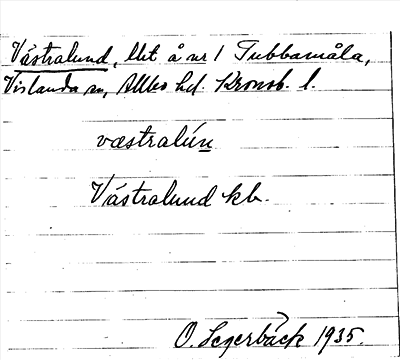 Västralund, lht å nr 1 Tubbamåla,
Vislanda sn, Allbo hd. Kronob. l.
væstralún
Västralund kb.
O. Segerbäck 1935.